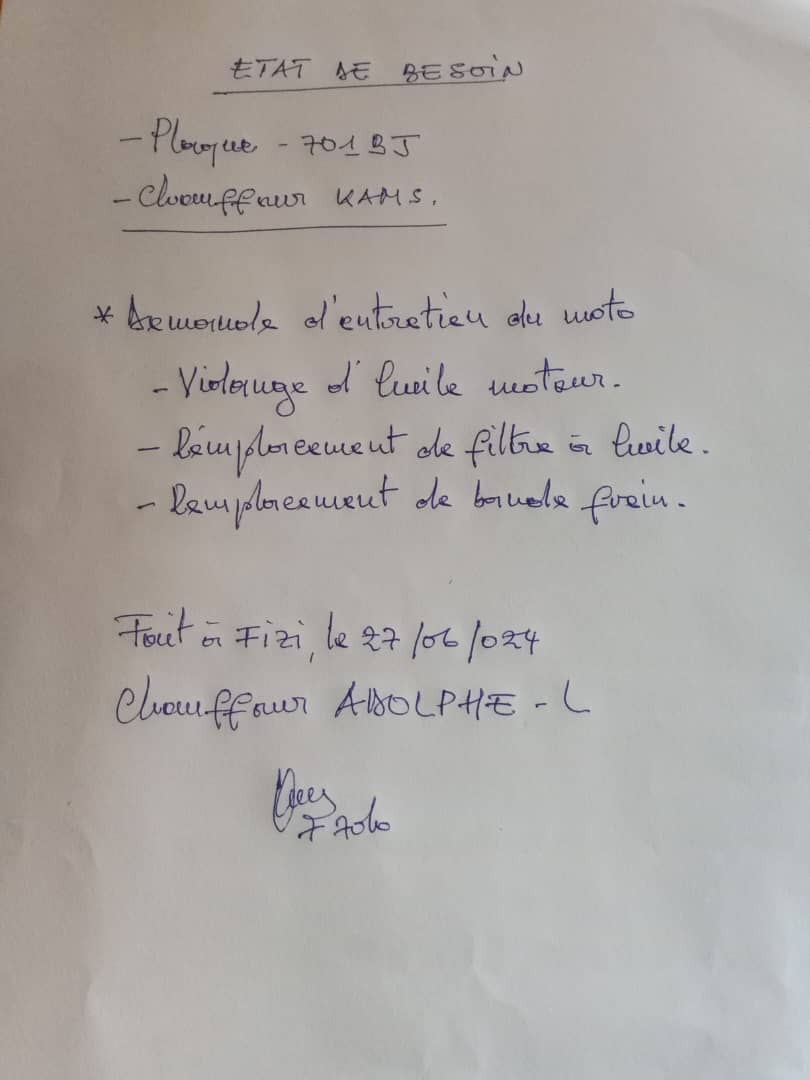 ETAT DE BESOIN
- Plaque - 701BJ
- Chauffeur KAMS.
* Demande d'entretien du moto
- Vidange d'huile moteur.
- Rémplacement de filtre à huile.
- Remplacement de bande frein.
Fait à Fizi, le 27/06/024
Chauffeur ADOLPHE - L